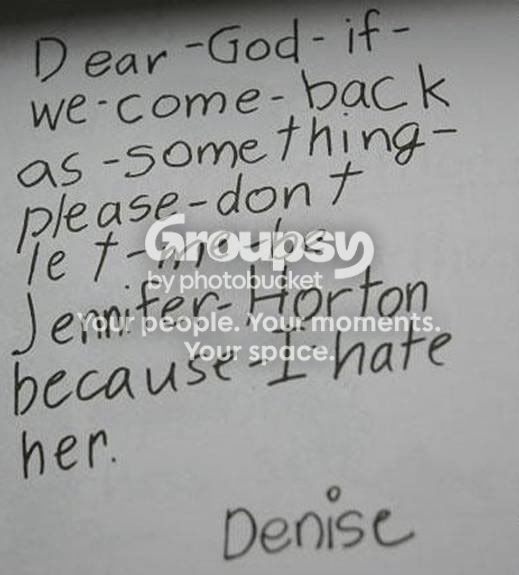 Dear-God-if-
we-come-back
as-something-
please-don't
let-me-be
Jennifer-Horton
because-I hate
her.
Denise
Groupsy
by photobucket
Your people. Your moments.
Your space.